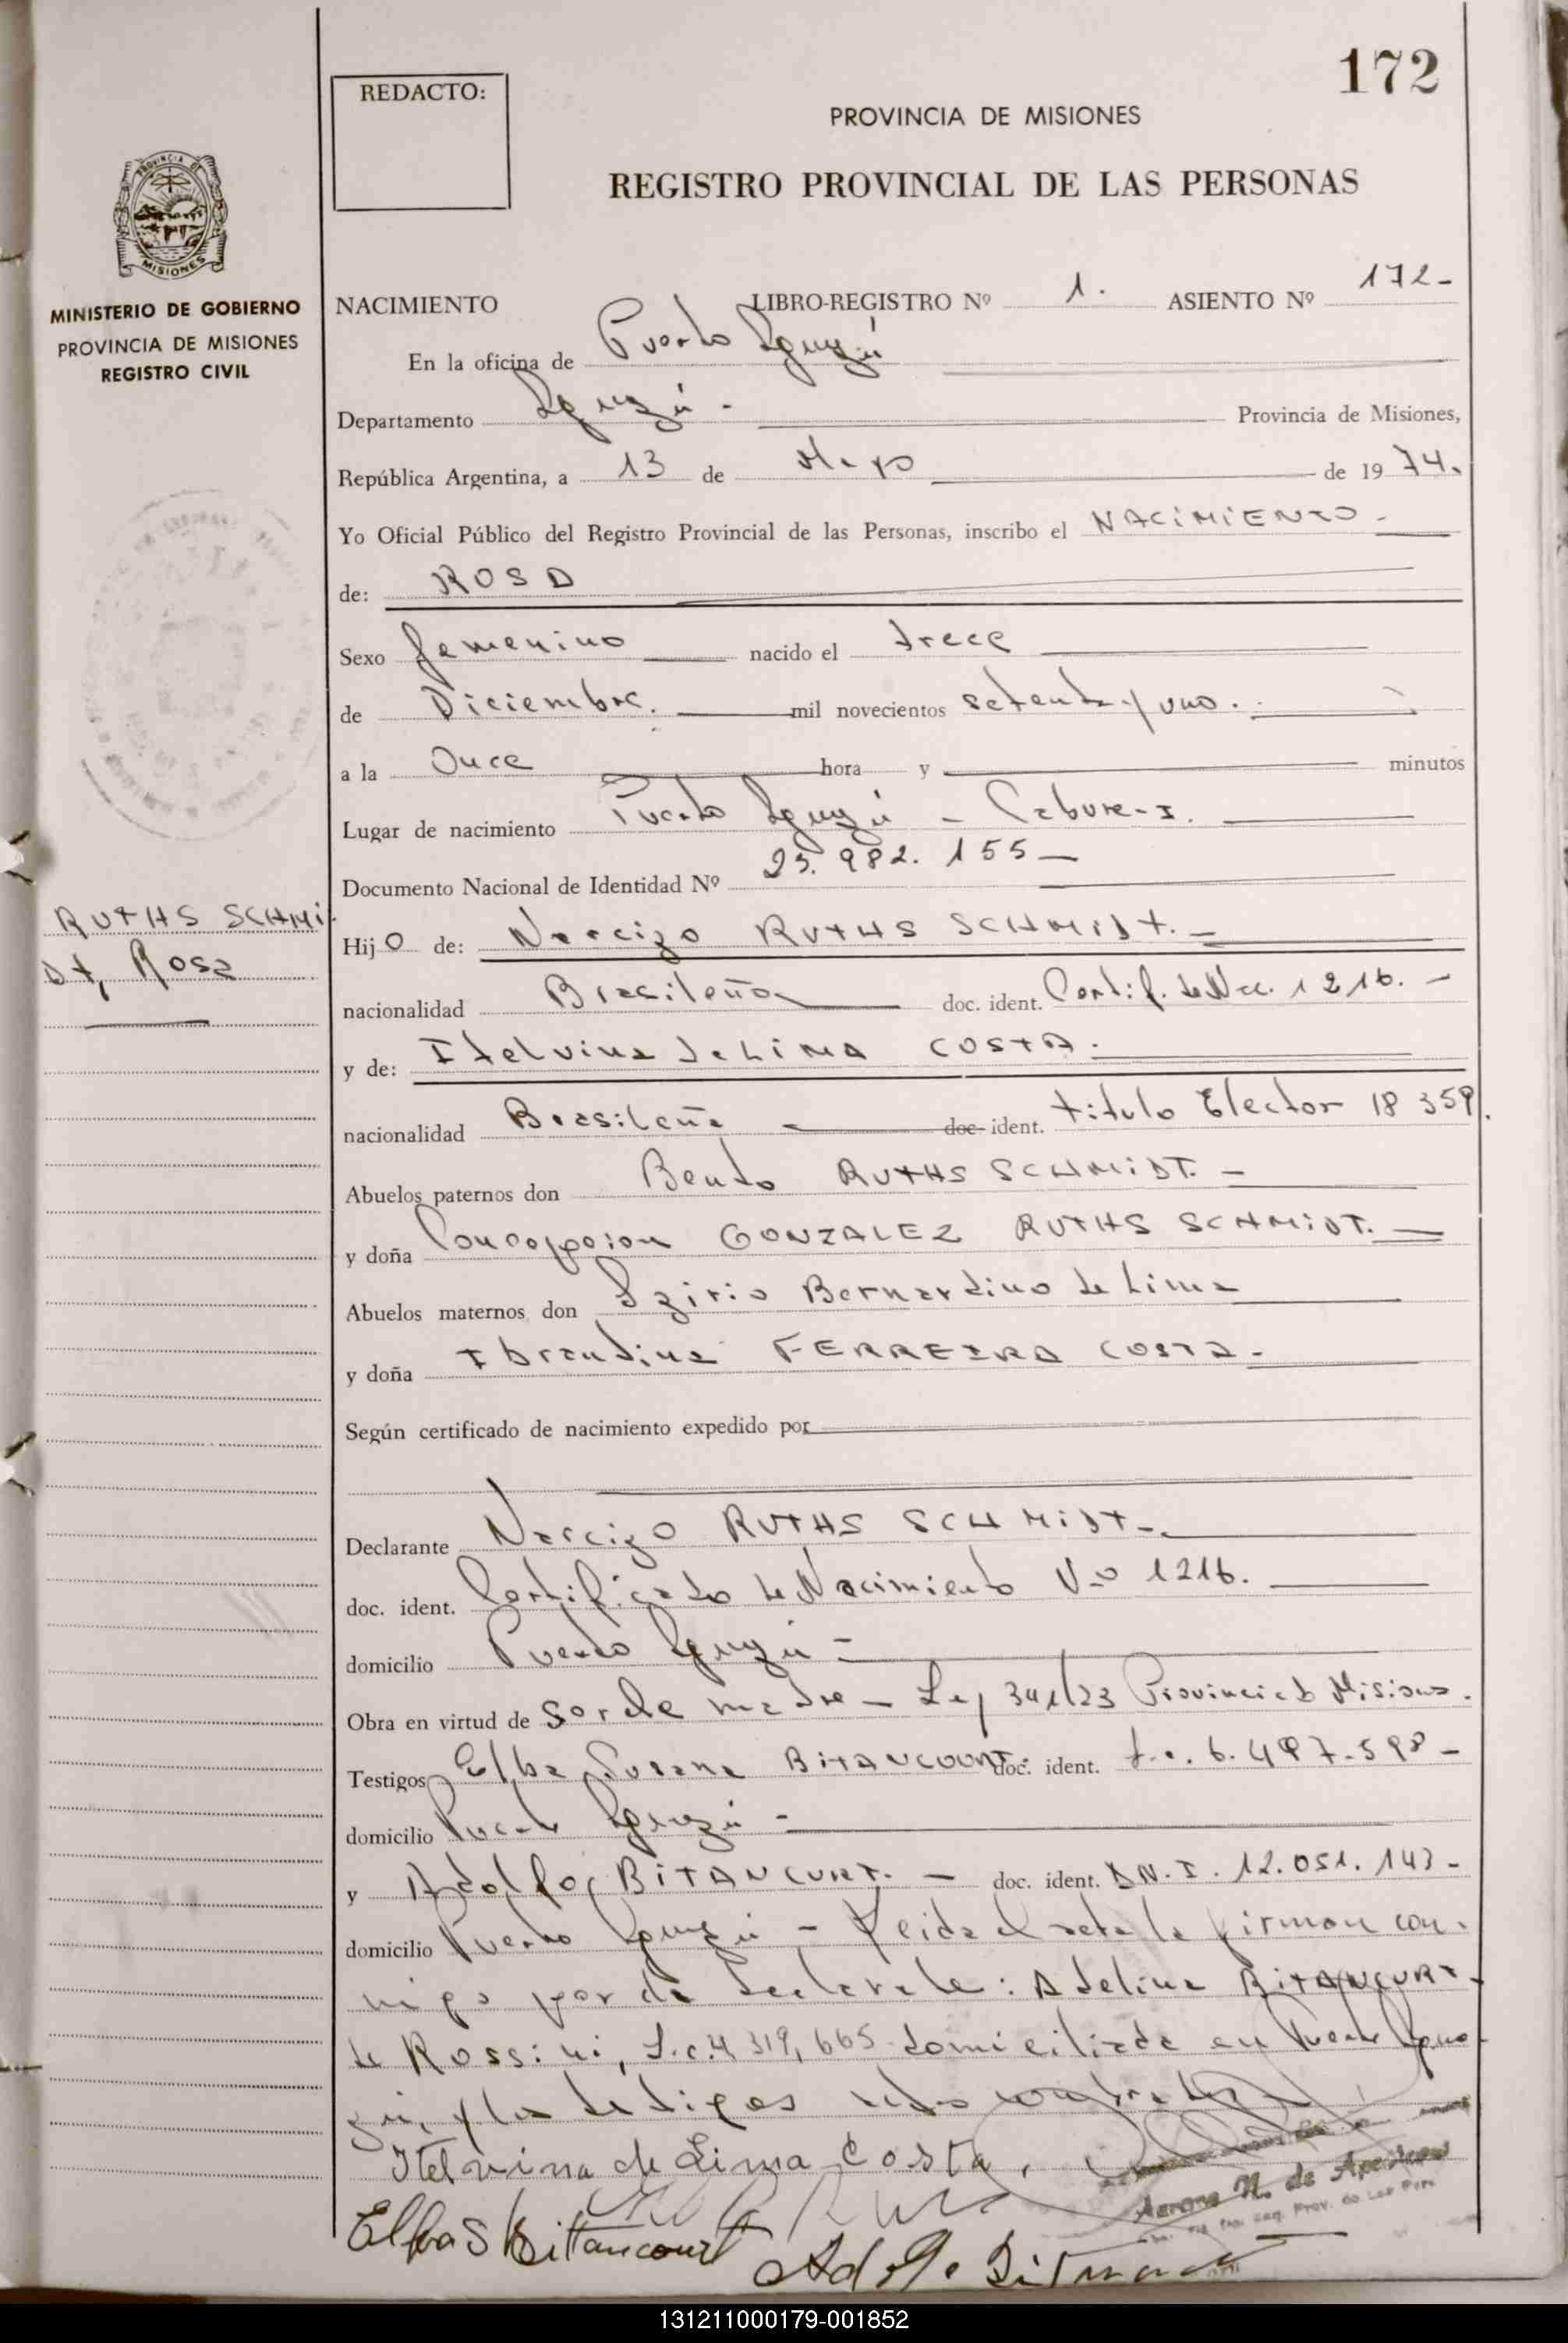 172
REDACTO:
PROVINCIA DE MISIONES
REGISTRO PROVINCIAL DE LAS PERSONAS
PROVINCIA DE
MISIONES
MINISTERIO DE GOBIERNO
PROVINCIA DE MISIONES
REGISTRO CIVIL
NACIMIENTO LIBRO-REGISTRO Nº 1. ASIENTO Nº 172-
En la oficina de Puerto Iguazú
Departamento Iguazú - Provincia de Misiones,
República Argentina, a 13 de Mayo de 1974.
Yo Oficial Público del Registro Provincial de las Personas, inscribo el NACIMIENTO -
de: ROSA
Sexo femenino nacido el trece
de Diciembre. mil novecientos setenta y uno.
a la Once hora y minutos
Lugar de nacimiento Puerto Iguazú - Cabure-I.
Documento Nacional de Identidad Nº 25.982.155-
RUTHS SCHMI
DT, Rosa
Hijo de: Narcizo RUTHS SCHMIDT. -
nacionalidad Brasileño doc. ident. Certif. de Nac. 1216. -
y de: Itelvina de LIMA COSTA.
nacionalidad Brasileña doc. ident. titulo Elector 18 359.
Abuelos paternos don Bento RUTHS SCHMIDT. -
y doña Concepcion GONZALEZ RUTHS SCHMIDT.
Abuelos maternos don Bernardino de Lima
y doña Ibrandina FERREIRA COSTA -
Según certificado de nacimiento expedido por
Declarante Narcizo RUTHS SCHMIDT-
doc. ident. Certificado de Nacimiento Nº 1216.
domicilio Puerto Iguazú -
Obra en virtud de ser de madre - Ley 341/23 Provincia de Misiones.
Testigos Elba Susana BITANCOURT. doc. ident. L.C. 6.497.598 -
domicilio Puerto Iguazú -
y Adolfo BITANCURT. - doc. ident. D.N.I. 12.051.143 -
domicilio Puerto Iguazú - Leida el acta la firman con-
migo por declarante: Adelina BITANCURT
de Rossini, L.c. 4.319,665 domiciliada en Puerto Igua-
zú, y los testigos
Itelvina de Lima Costa.
N. de
Elba S Bittancourt Adolfo
131211000179-001852